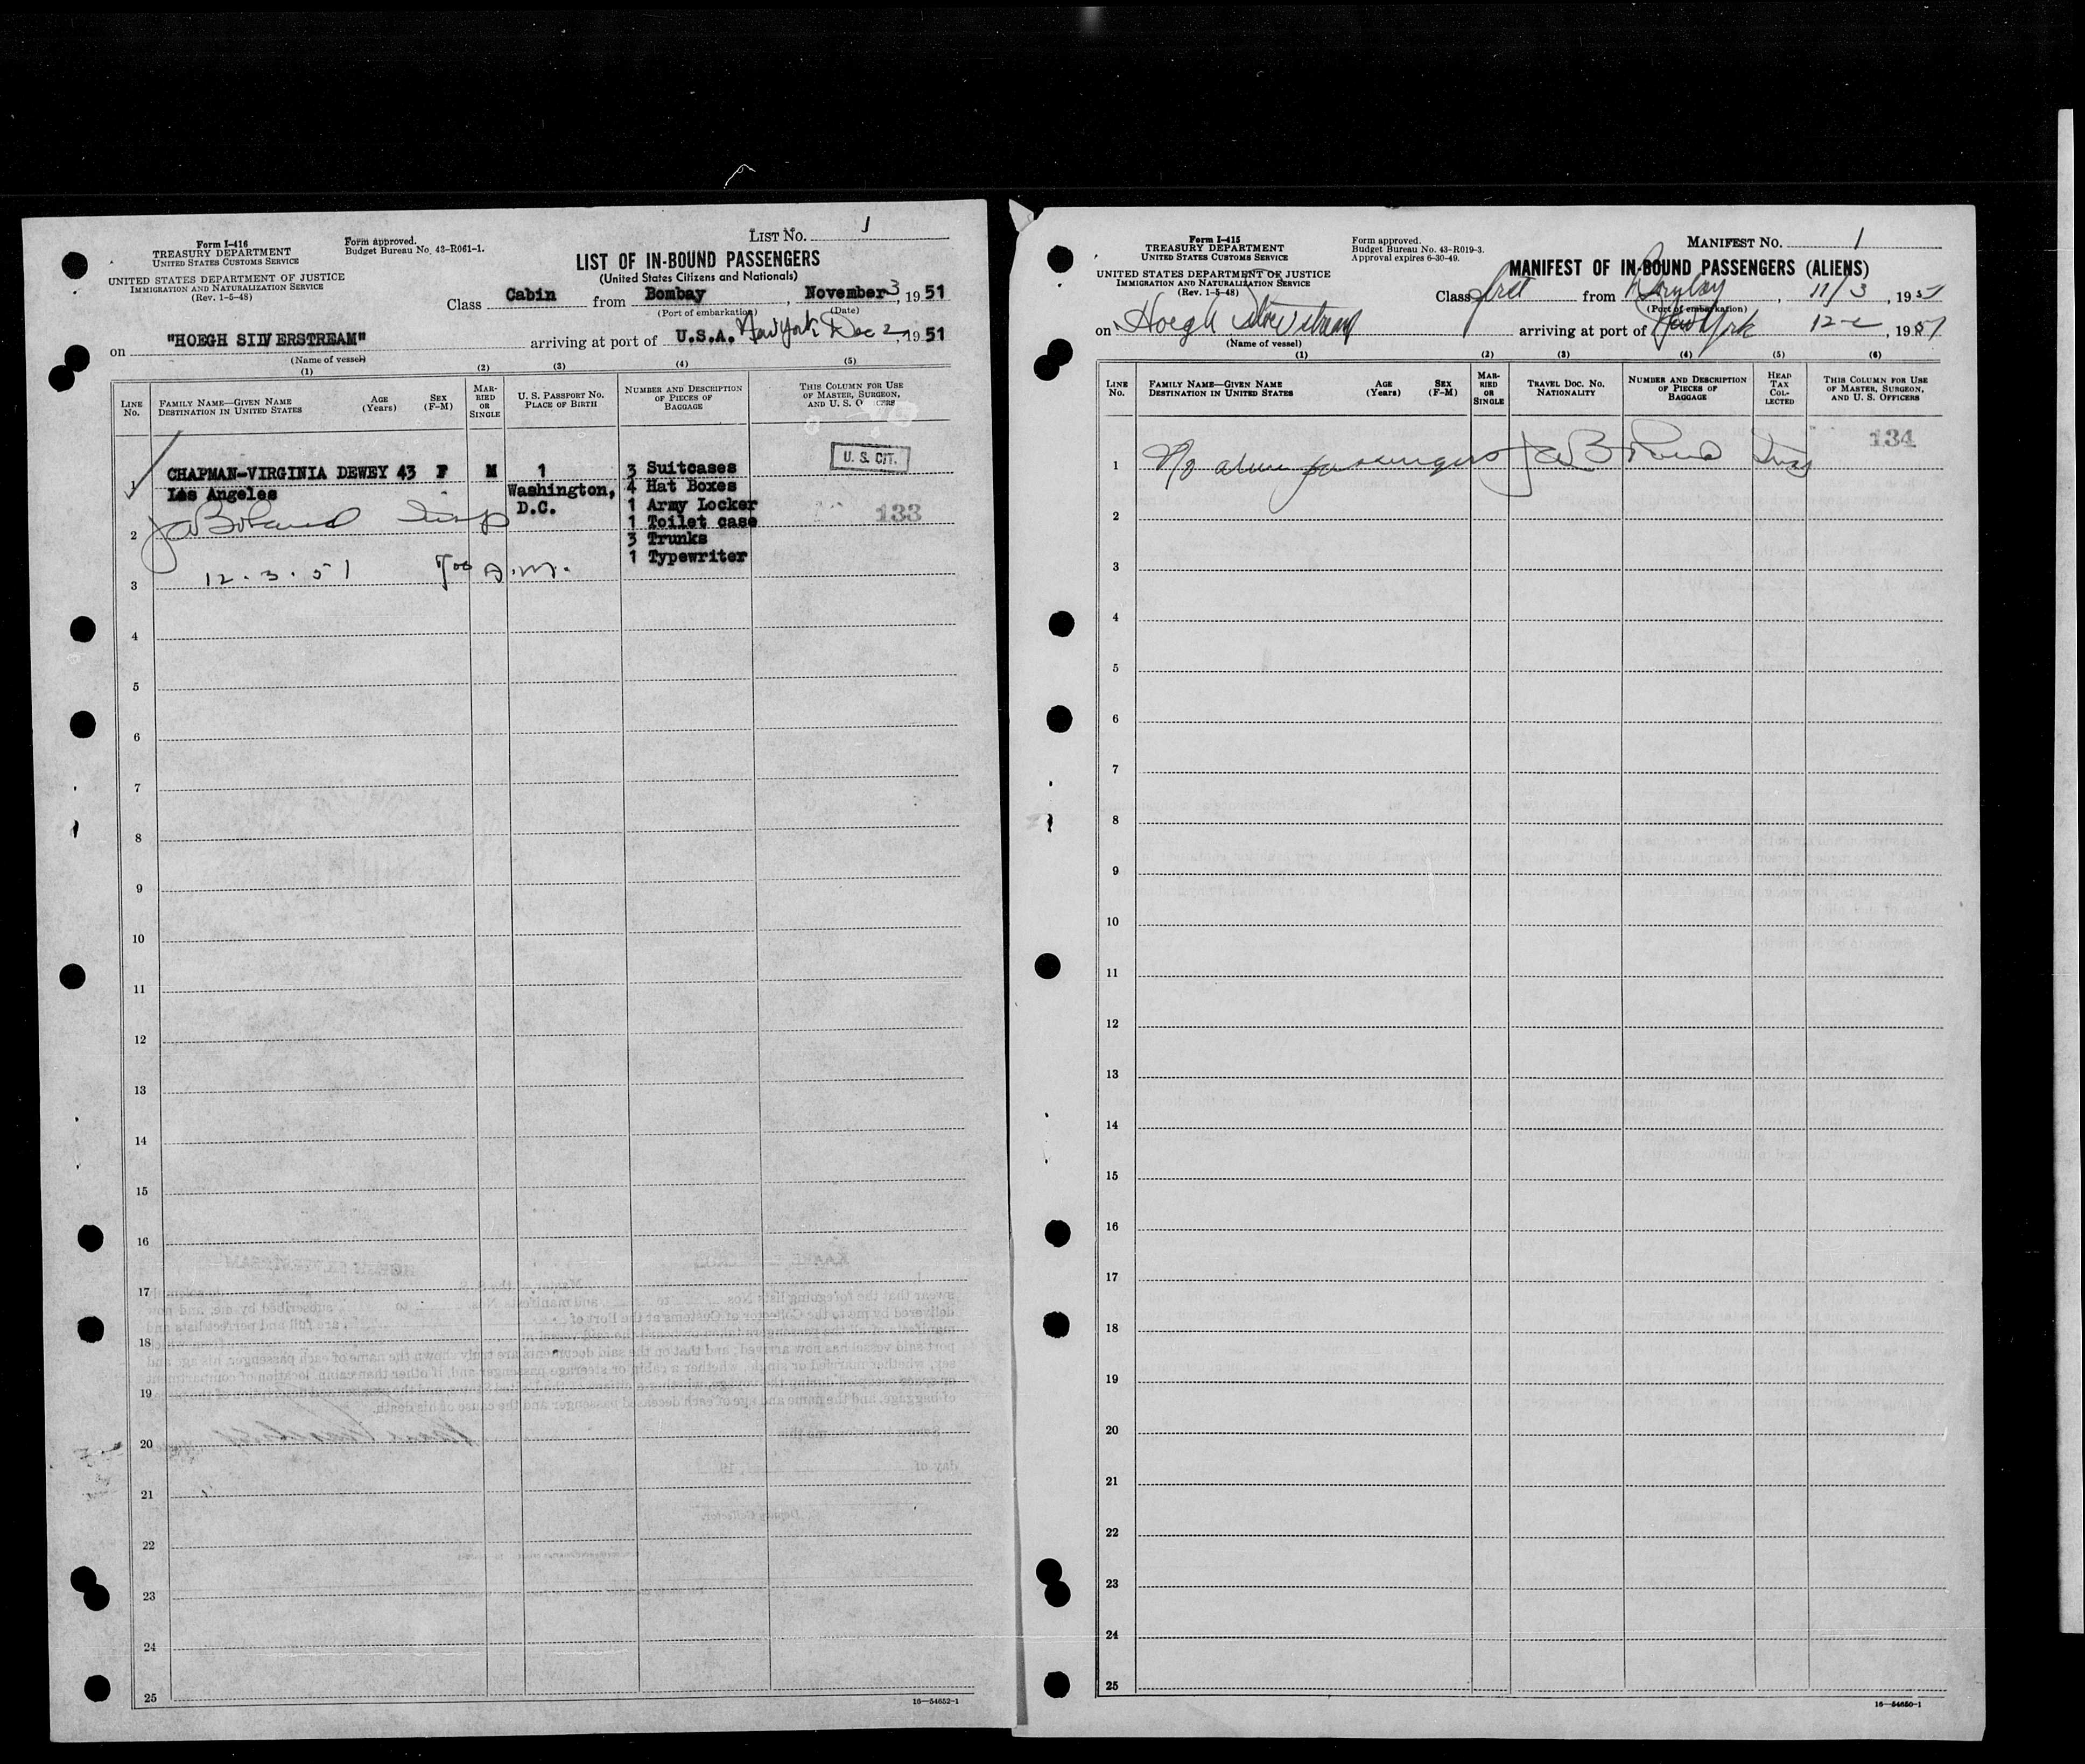 Form I-416
TREASURY DEPARTMENT
UNITED STATES CUSTOMS SERVICE
UNITED STATES DEPARTMENT OF JUSTICE
IMMIGRATION AND NATURALIZATION SERVICE
(Rev. 1-5-48)
Form approved.
Budget Bureau No. 43-R061-1.
LIST NO. 1
LIST OF IN-BOUND PASSENGERS
(United States Citizens and Nationals)
Class Cabin from Bombay, November 3, 1951
(Port of embarkation) (Date)
on "HOEGH SILVERSTREAM" arriving at port of U.S.A. New York Dec 2, 1951
(Name of vessel)
(1) (2) (3) (4) (5)
LINE No. FAMILY NAME—GIVEN NAME DESTINATION IN UNITED STATES AGE (Years) SEX (F-M) MARRIED OR SINGLE U. S. PASSPORT NO. PLACE OF BIRTH NUMBER AND DESCRIPTION OF PIECES OF BAGGAGE THIS COLUMN FOR USE OF MASTER, SURGEON, AND U. S. OFFICERS
1 CHAPMAN-VIRGINIA DEWEY 43 F M 1 3 Suitcases U. S. CIT.
Los Angeles Washington, 4 Hat Boxes
D.C. 1 Army Locker
2 1 Toilet case 133
3 Trunks
1 Typewriter
3 12.3.51 700 A.M.
4
5
6
7
8
9
10
11
12
13
14
15
16
17
18
19
20
21
22
23
24
25
16—54652-1
Form I-415
TREASURY DEPARTMENT
UNITED STATES CUSTOMS SERVICE
UNITED STATES DEPARTMENT OF JUSTICE
IMMIGRATION AND NATURALIZATION SERVICE
(Rev. 1-5-48)
Form approved.
Budget Bureau No. 43-R019-3.
Approval expires 6-30-49.
MANIFEST NO. 1
MANIFEST OF IN-BOUND PASSENGERS (ALIENS)
Class first from Bombay, 11/3, 1951
(Port of embarkation)
on Hoegh Silverstream arriving at port of New York 12-2, 1951
(Name of vessel)
(1) (2) (3) (4) (5) (6)
LINE No. FAMILY NAME—GIVEN NAME DESTINATION IN UNITED STATES AGE (Years) SEX (F-M) MARRIED OR SINGLE TRAVEL DOC. NO. NATIONALITY NUMBER AND DESCRIPTION OF PIECES OF BAGGAGE HEAD TAX COLLECTED THIS COLUMN FOR USE OF MASTER, SURGEON, AND U. S. OFFICERS
134
1 No alien passengers
2
3
4
5
6
7
8
9
10
11
12
13
14
15
16
17
18
19
20
21
22
23
24
25
16—54650-1